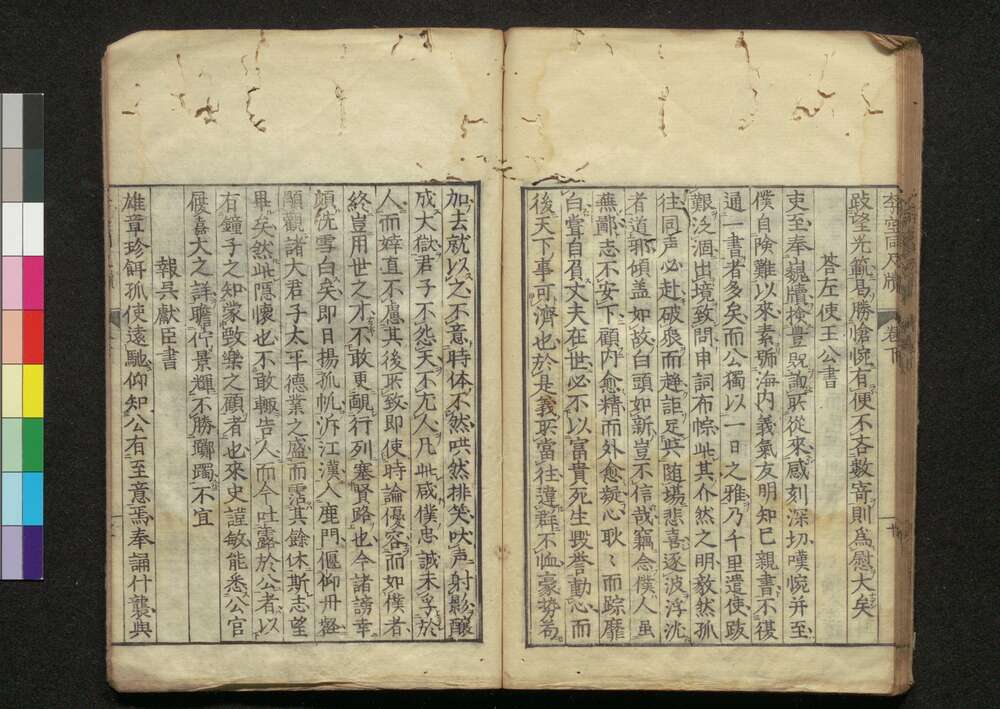 李空同尺牘 卷下 十
跂望光範曷勝愴惋有便不吝数寄則為慰大矣
荅左使王公書
吏至奉巍牘捡豊貺誨所從來感刻深切嘆惋并至
僕自険難以來素號海内義氣友明知已親書不復
通一書者多矣而公獨以一日之雅乃千里遣使跋
艱泛涸出境致問申詞布悰此其介然之明毅然孤
往同声必赴破衆而趍詎足與随場悲喜逐波浮沈
者道邪頌盖如故白頭如新豈不信哉藐念僕人虽
無鄙志不安下顧内愈精而外愈凝心耿〻而踪靡
白嘗自負丈夫在世必不以富貴死生毀誉動心而
後天下事可濟也於是義所當往違群不恤豪势苟
加去就以之不意時体不然哄然排笑吠声射影釀
成大獄君子不怨天不尤人凡此咸僕忠誠未孚於
人而婞直不慮其後所致即使時論優容而如僕者
終豈用世之才不敢更靦行列塞賢路也今諸謗幸
頗洗雪白矣即日揚孤帆泝江漢人鹿門偃仰丹壑
顒觀諸大君子太平德業之盛而霑其餘休斯志望
畢矣然此隠懐也不敢輙告人而今吐露於公者以
有鐘子之知蒙斅樂之顧者也來史諠敏能悉公官
履嘉大之詳瞻佇景輝不勝躑躅不宜
報呉獻臣書
雄章珍餌孤使遠馳仰知公有至意焉奉誦什襲與